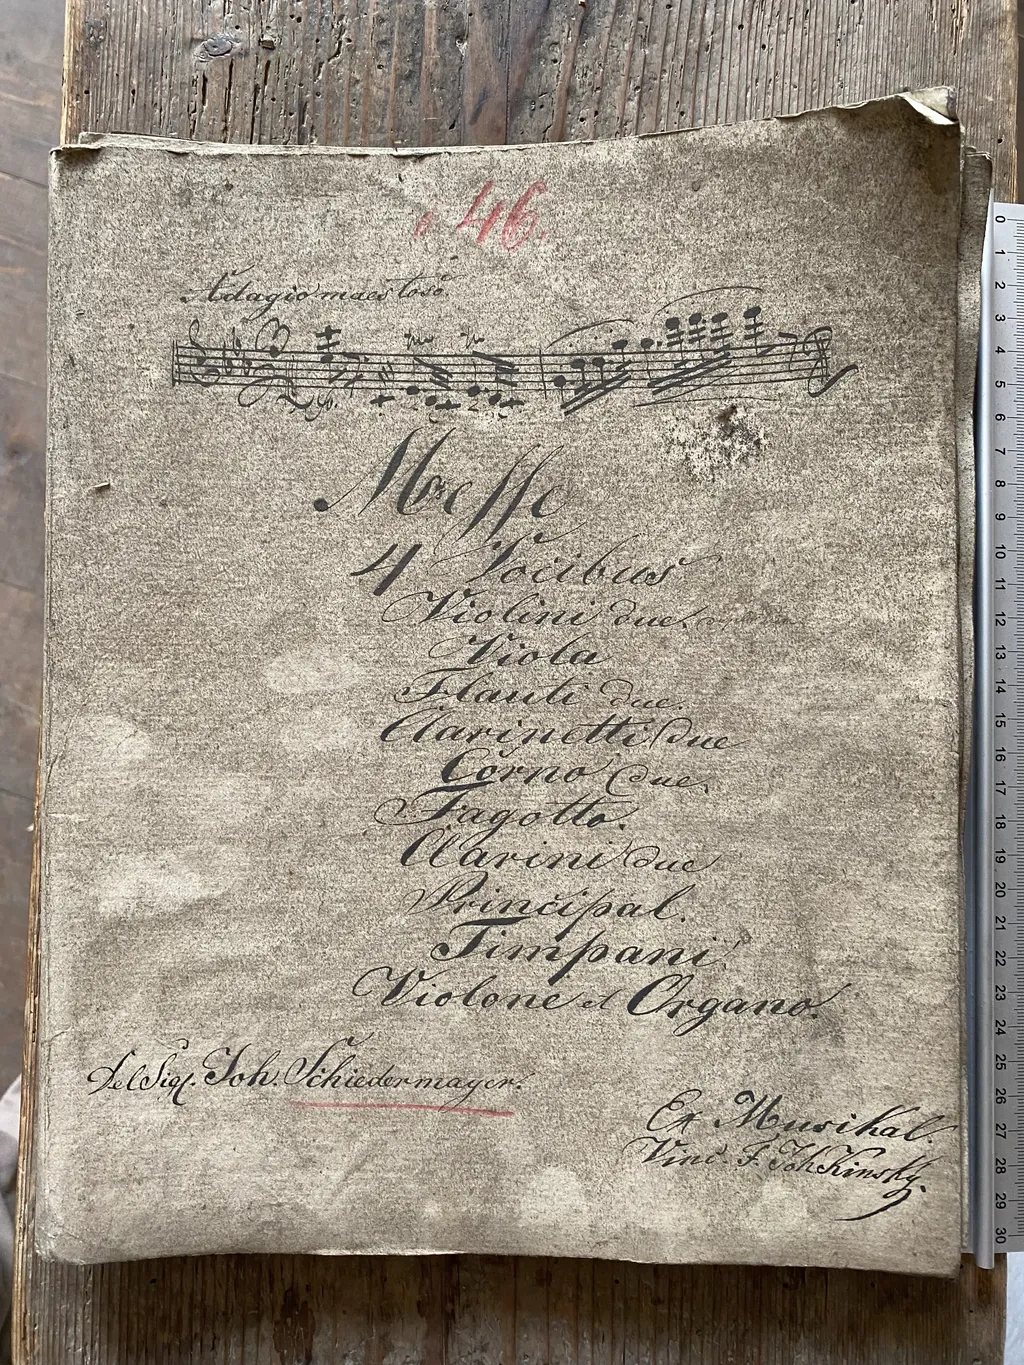 46.
Adagio maestoso.
Messe
4 Vocibus
Violini due.
Viola
Flauti due.
Clarinetti due
Corno due.
Fagotto.
Clarini due
Principal.
Timpani
Violone et Organo.
Del Sig. Joh. Schiedermayer.
Ex Musikal.
Vinc. F. Joh Kinsky.
0
1
2
3
4
5
6
7
8
9
10
11
12
13
14
15
16
17
18
19
20
21
22
23
24
25
26
27
28
29
30